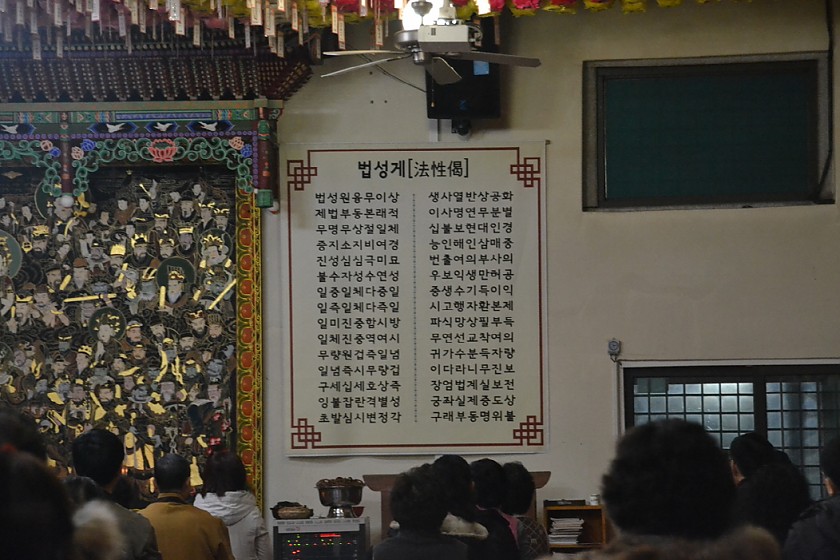 법성게[法性偈]
법성원융무이상
제법부동본래적
무명무상절일체
증지소지비여경
진성심심극미묘
불수자성수연성
일중일체다중일
일즉일체다즉일
일미진중함시방
일체진중역여시
무량원겁즉일념
일념즉시무량겁
구세십세호상즉
잉불잡란격별성
초발심시변정각
생사열반상공화
이사명연무분별
십불보현대인경
능인해인삼매중
번출여의부사의
우보익생만허공
중생수기득이익
시고행자환본제
파식망상필부득
무연선교착여의
귀가수분득자량
이다라니무진보
장엄법계실보전
궁좌실제중도상
구래부동명위불